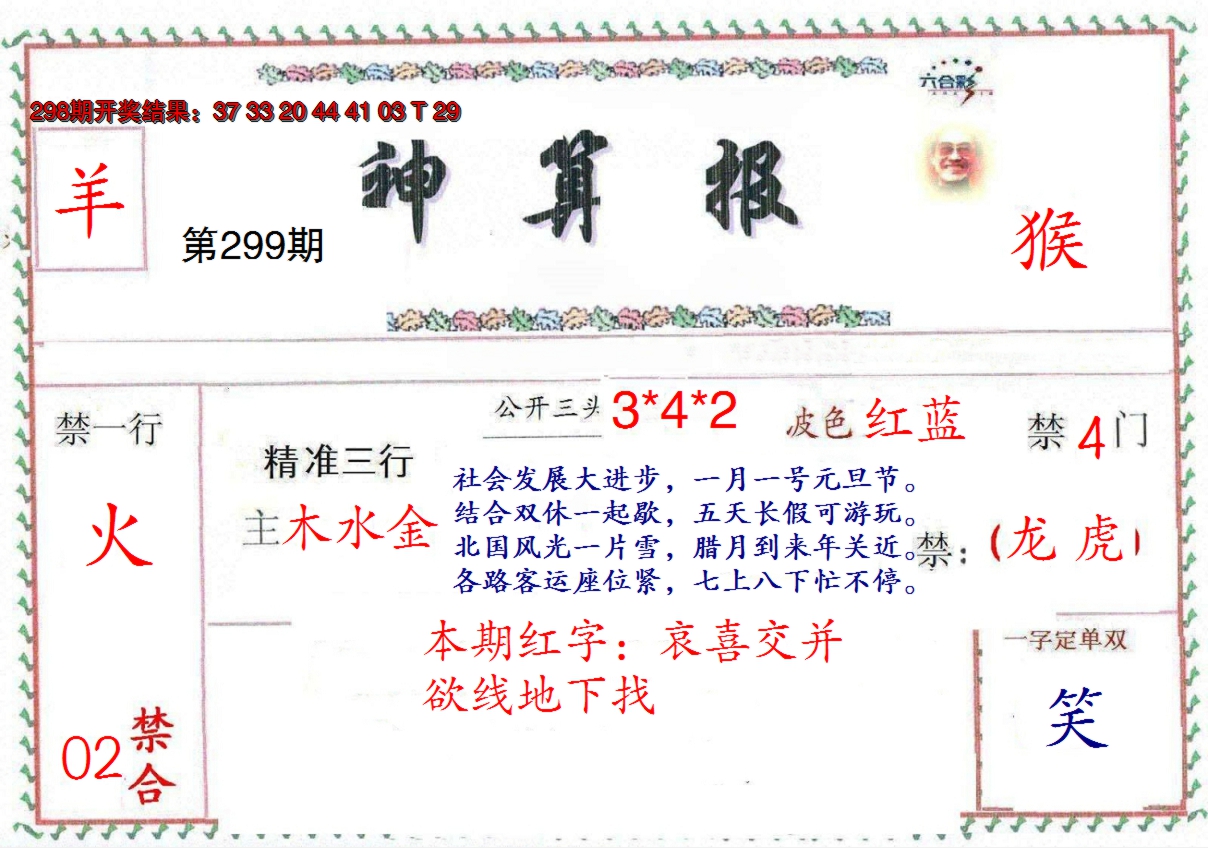 六合彩
298期开奖结果：37 33 20 44 41 03 T 29
神算报
羊
第299期
猴
禁一行
火
02
禁合
公开三头 3*4*2
波色 红蓝
禁 4 门
精准三行
主木水金
社会发展大进步，一月一号元旦节。
结合双休一起歇，五天长假可游玩。
北国风光一片雪，腊月到来年关近。
各路客运座位紧，七上八下忙不停。
禁：（龙 虎）
本期红字：哀喜交并
欲线地下找
一字定单双
笑